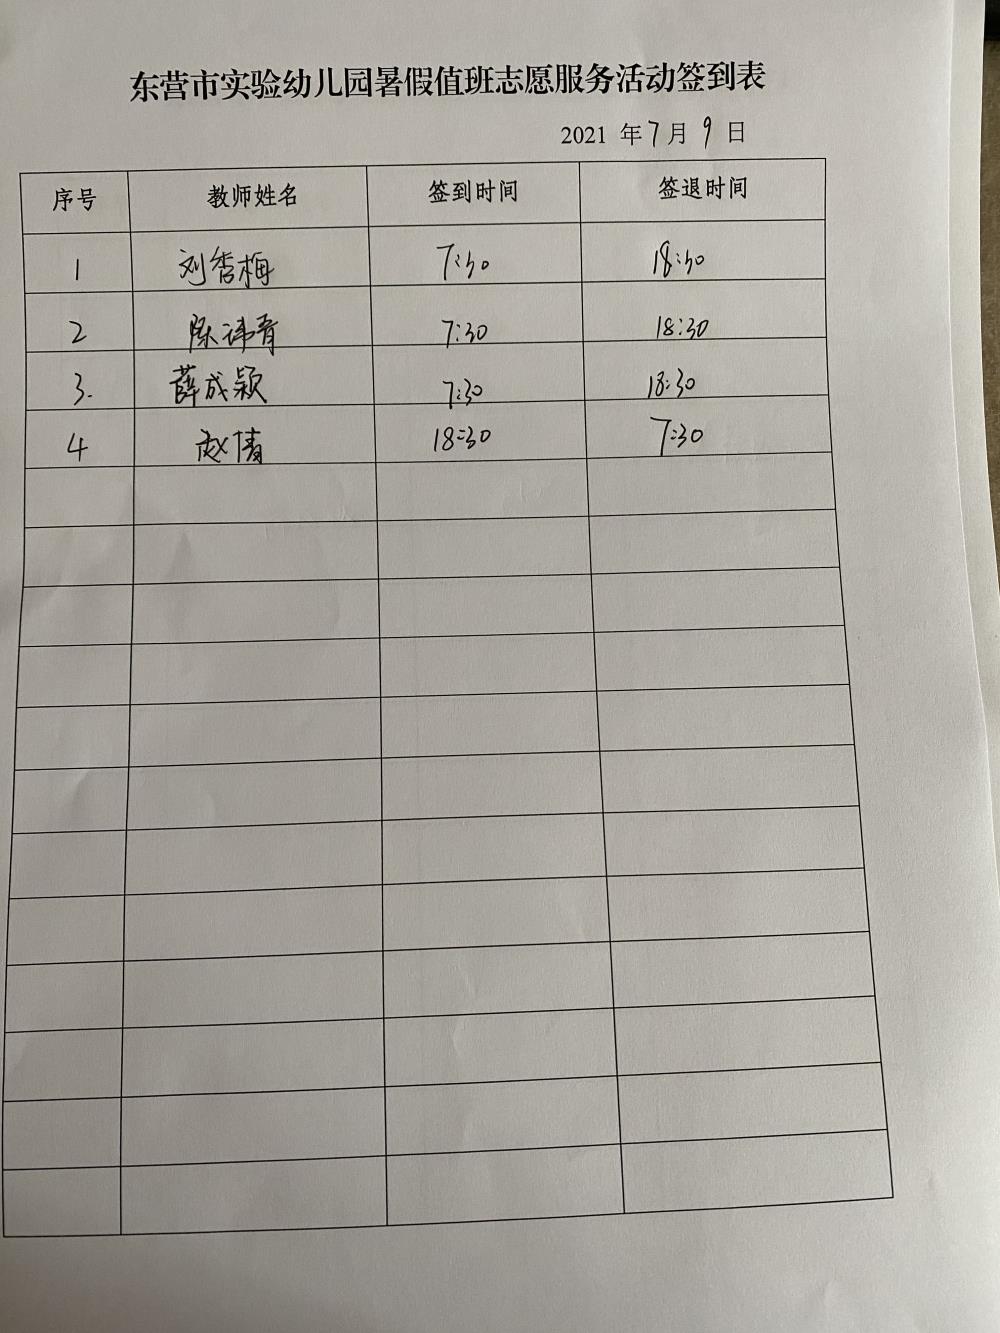 东营市实验幼儿园暑假值班志愿服务活动签到表
2021 年 7 月 9 日
序号 教师姓名 签到时间 签退时间
1 刘秀梅 7:30 18:30
2 陈 7:30 18:30
3. 薛成颖 7:30 18:30
4 赵倩 18:30 7:30